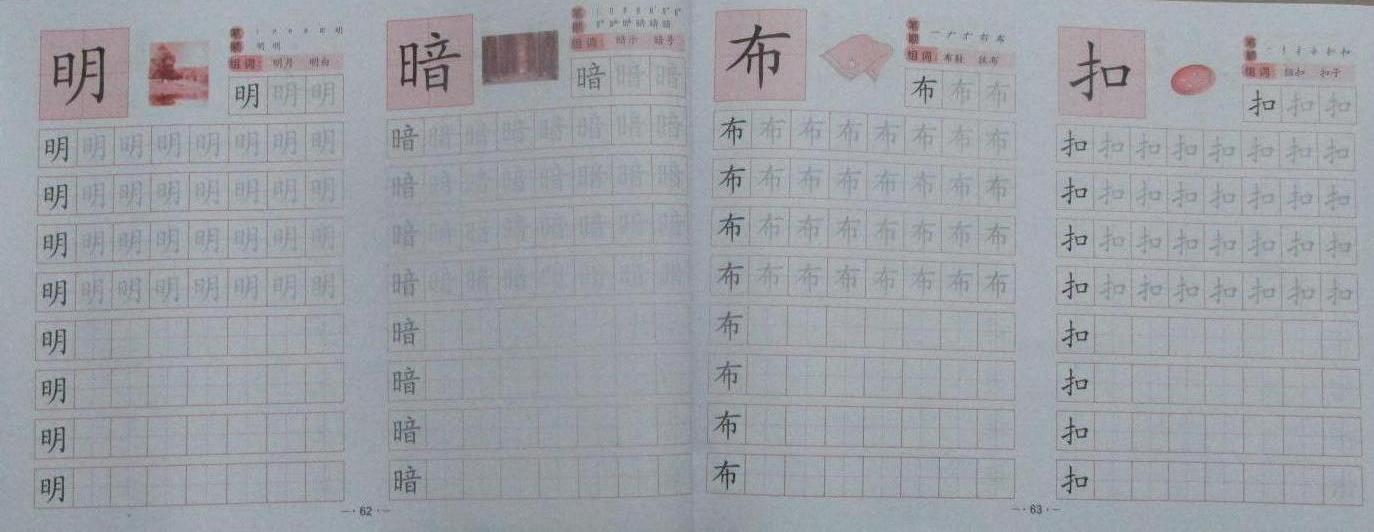 明
笔顺
明 明
组词 明月 明白
明 明 明
明 明 明 明 明 明 明 明
明 明 明 明 明 明 明 明
明 明 明 明 明 明 明 明
明 明 明 明 明 明 明 明
明
明
明
明
暗
笔顺
组词 暗示 暗号
暗 暗 暗
暗 暗 暗 暗 暗 暗 暗 暗
暗 暗 暗 暗 暗 暗 暗 暗
暗 暗 暗 暗 暗 暗 暗 暗
暗 暗 暗 暗 暗 暗 暗 暗
暗
暗
暗
暗
62
布
笔顺 一 ナ 布
组词 布鞋 抹布
布 布 布
布 布 布 布 布 布 布 布
布 布 布 布 布 布 布 布
布 布 布 布 布 布 布 布
布 布 布 布 布 布 布 布
布
布
布
布
扣
笔顺 扣 扣
组词 纽扣 扣子
扣 扣 扣
扣 扣 扣 扣 扣 扣 扣 扣
扣 扣 扣 扣 扣 扣 扣 扣
扣 扣 扣 扣 扣 扣 扣 扣
扣 扣 扣 扣 扣 扣 扣 扣
扣
扣
扣
扣
63